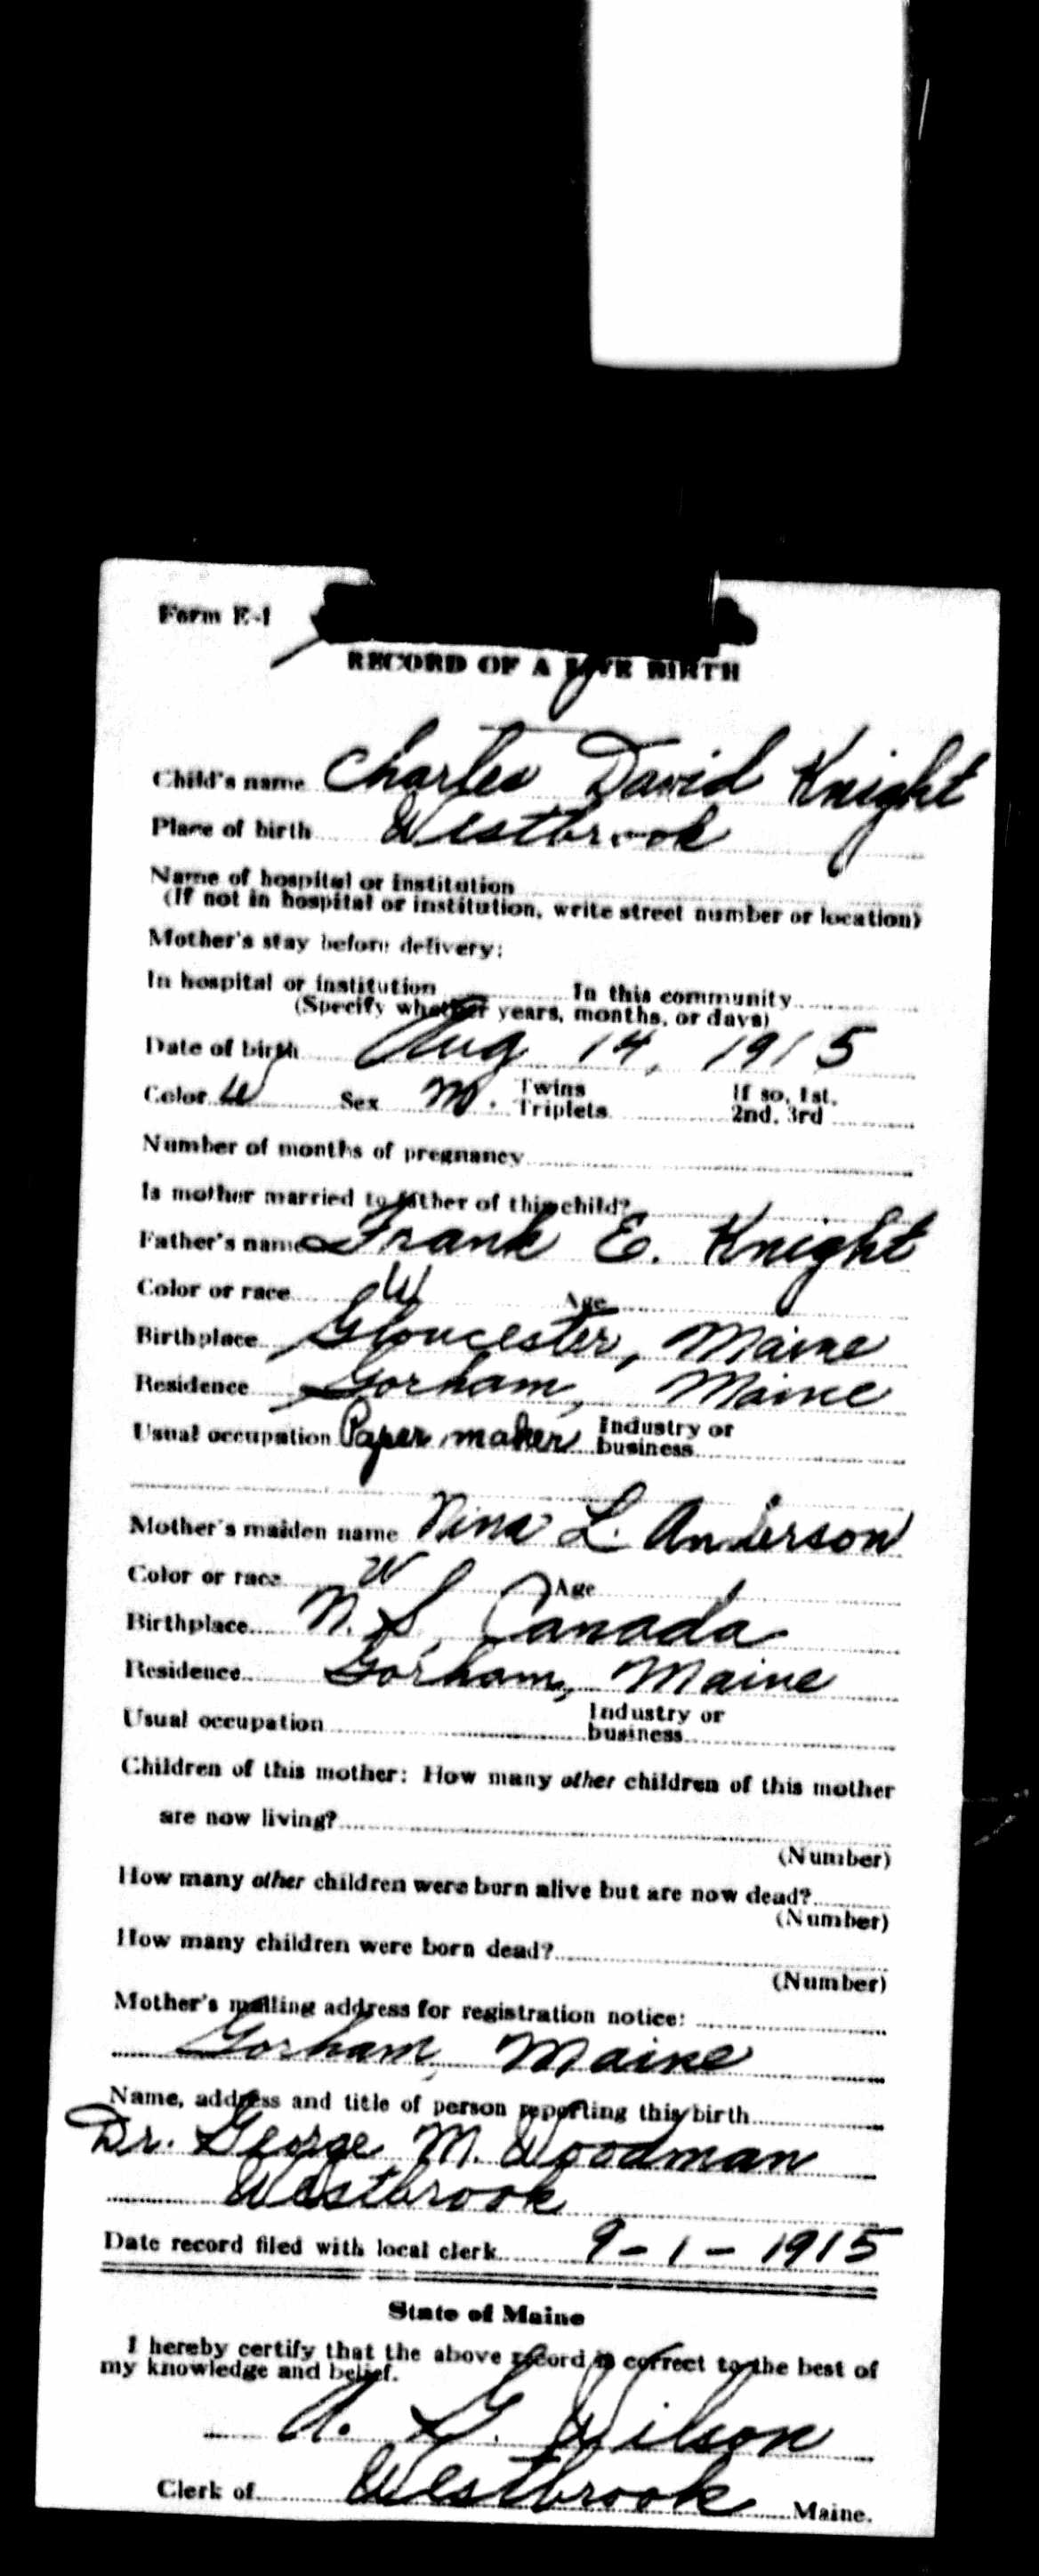 Form E-1
RECORD OF A LIVE BIRTH
Child's name Charles David Knight
Place of birth Westbrook
Name of hospital or institution
(If not in hospital or institution, write street number or location)
Mother's stay before delivery:
In hospital or institution In this community
(Specify whether years, months, or days)
Date of birth Aug 14, 1915
Color W Sex M. Twins Triplets If so, 1st, 2nd, 3rd
Number of months of pregnancy
Is mother married to father of this child?
Father's name Frank E. Knight
Color or race W Age
Birthplace Gloucester, Maine
Residence Gorham, Maine
Usual occupation Paper maker Industry or business
Mother's maiden name Nina L. Anderson
Color or race W Age
Birthplace N. S. Canada
Residence Gorham, Maine
Usual occupation Industry or business
Children of this mother: How many other children of this mother
are now living?
(Number)
How many other children were born alive but are now dead?
(Number)
How many children were born dead?
(Number)
Mother's mailing address for registration notice:
Gorham, Maine
Name, address and title of person reporting this birth
Dr. George M. Woodman
Westbrook
Date record filed with local clerk 9-1-1915
State of Maine
I hereby certify that the above record is correct to the best of
my knowledge and belief.
A. G. Wilson
Clerk of Westbrook Maine.